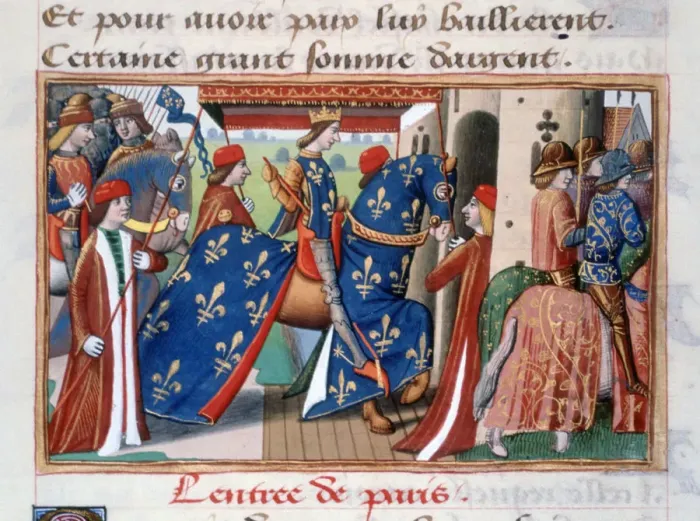 Et pour avoir paix luy baillierent.
Certaine grant somme dargent.
Lentree de paris.